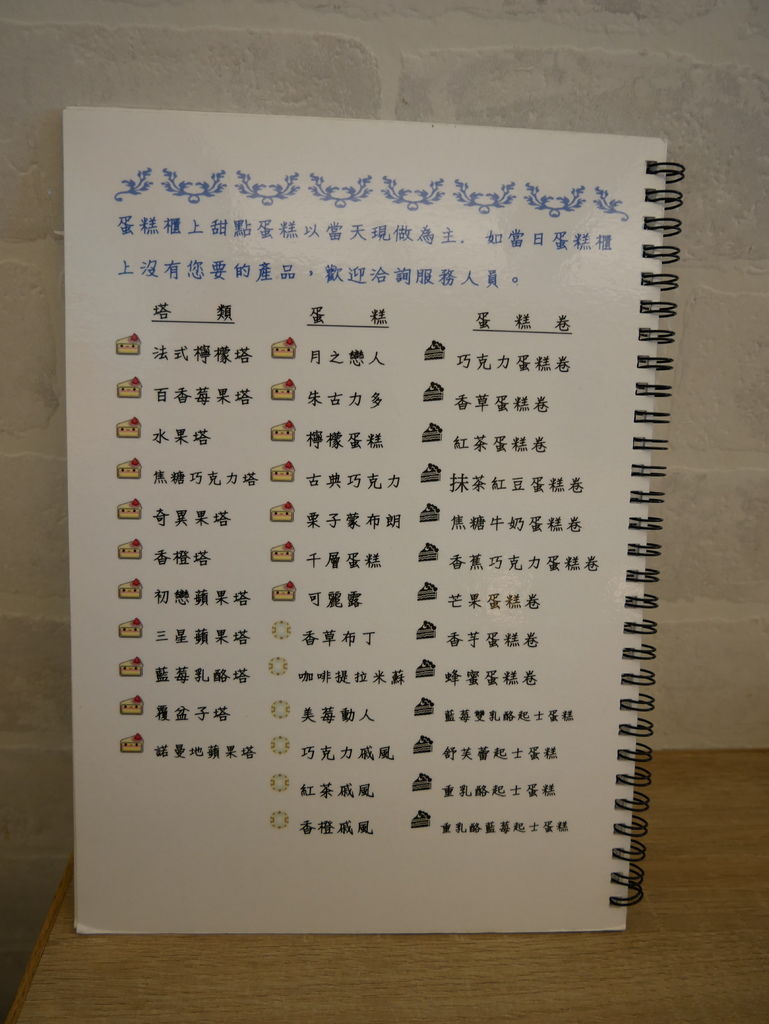 蛋糕櫃上甜點蛋糕以當天現做為主. 如當日蛋糕櫃
上沒有您要的產品，歡迎洽詢服務人員。
塔 類
法式檸檬塔
百香莓果塔
水果塔
焦糖巧克力塔
奇異果塔
香橙塔
初戀蘋果塔
三星蘋果塔
藍莓乳酪塔
覆盆子塔
諾曼地蘋果塔
蛋 糕
月之戀人
朱古力多
檸檬蛋糕
古典巧克力
栗子蒙布朗
千層蛋糕
可麗露
香草布丁
咖啡提拉米蘇
美莓動人
巧克力戚風
紅茶戚風
香橙戚風
蛋 糕 卷
巧克力蛋糕卷
香草蛋糕卷
紅茶蛋糕卷
抹茶紅豆蛋糕卷
焦糖牛奶蛋糕卷
香蕉巧克力蛋糕卷
芒果蛋糕卷
香芋蛋糕卷
蜂蜜蛋糕卷
藍莓雙乳酪起士蛋糕
舒芙蕾起士蛋糕
重乳酪起士蛋糕
重乳酪藍莓起士蛋糕